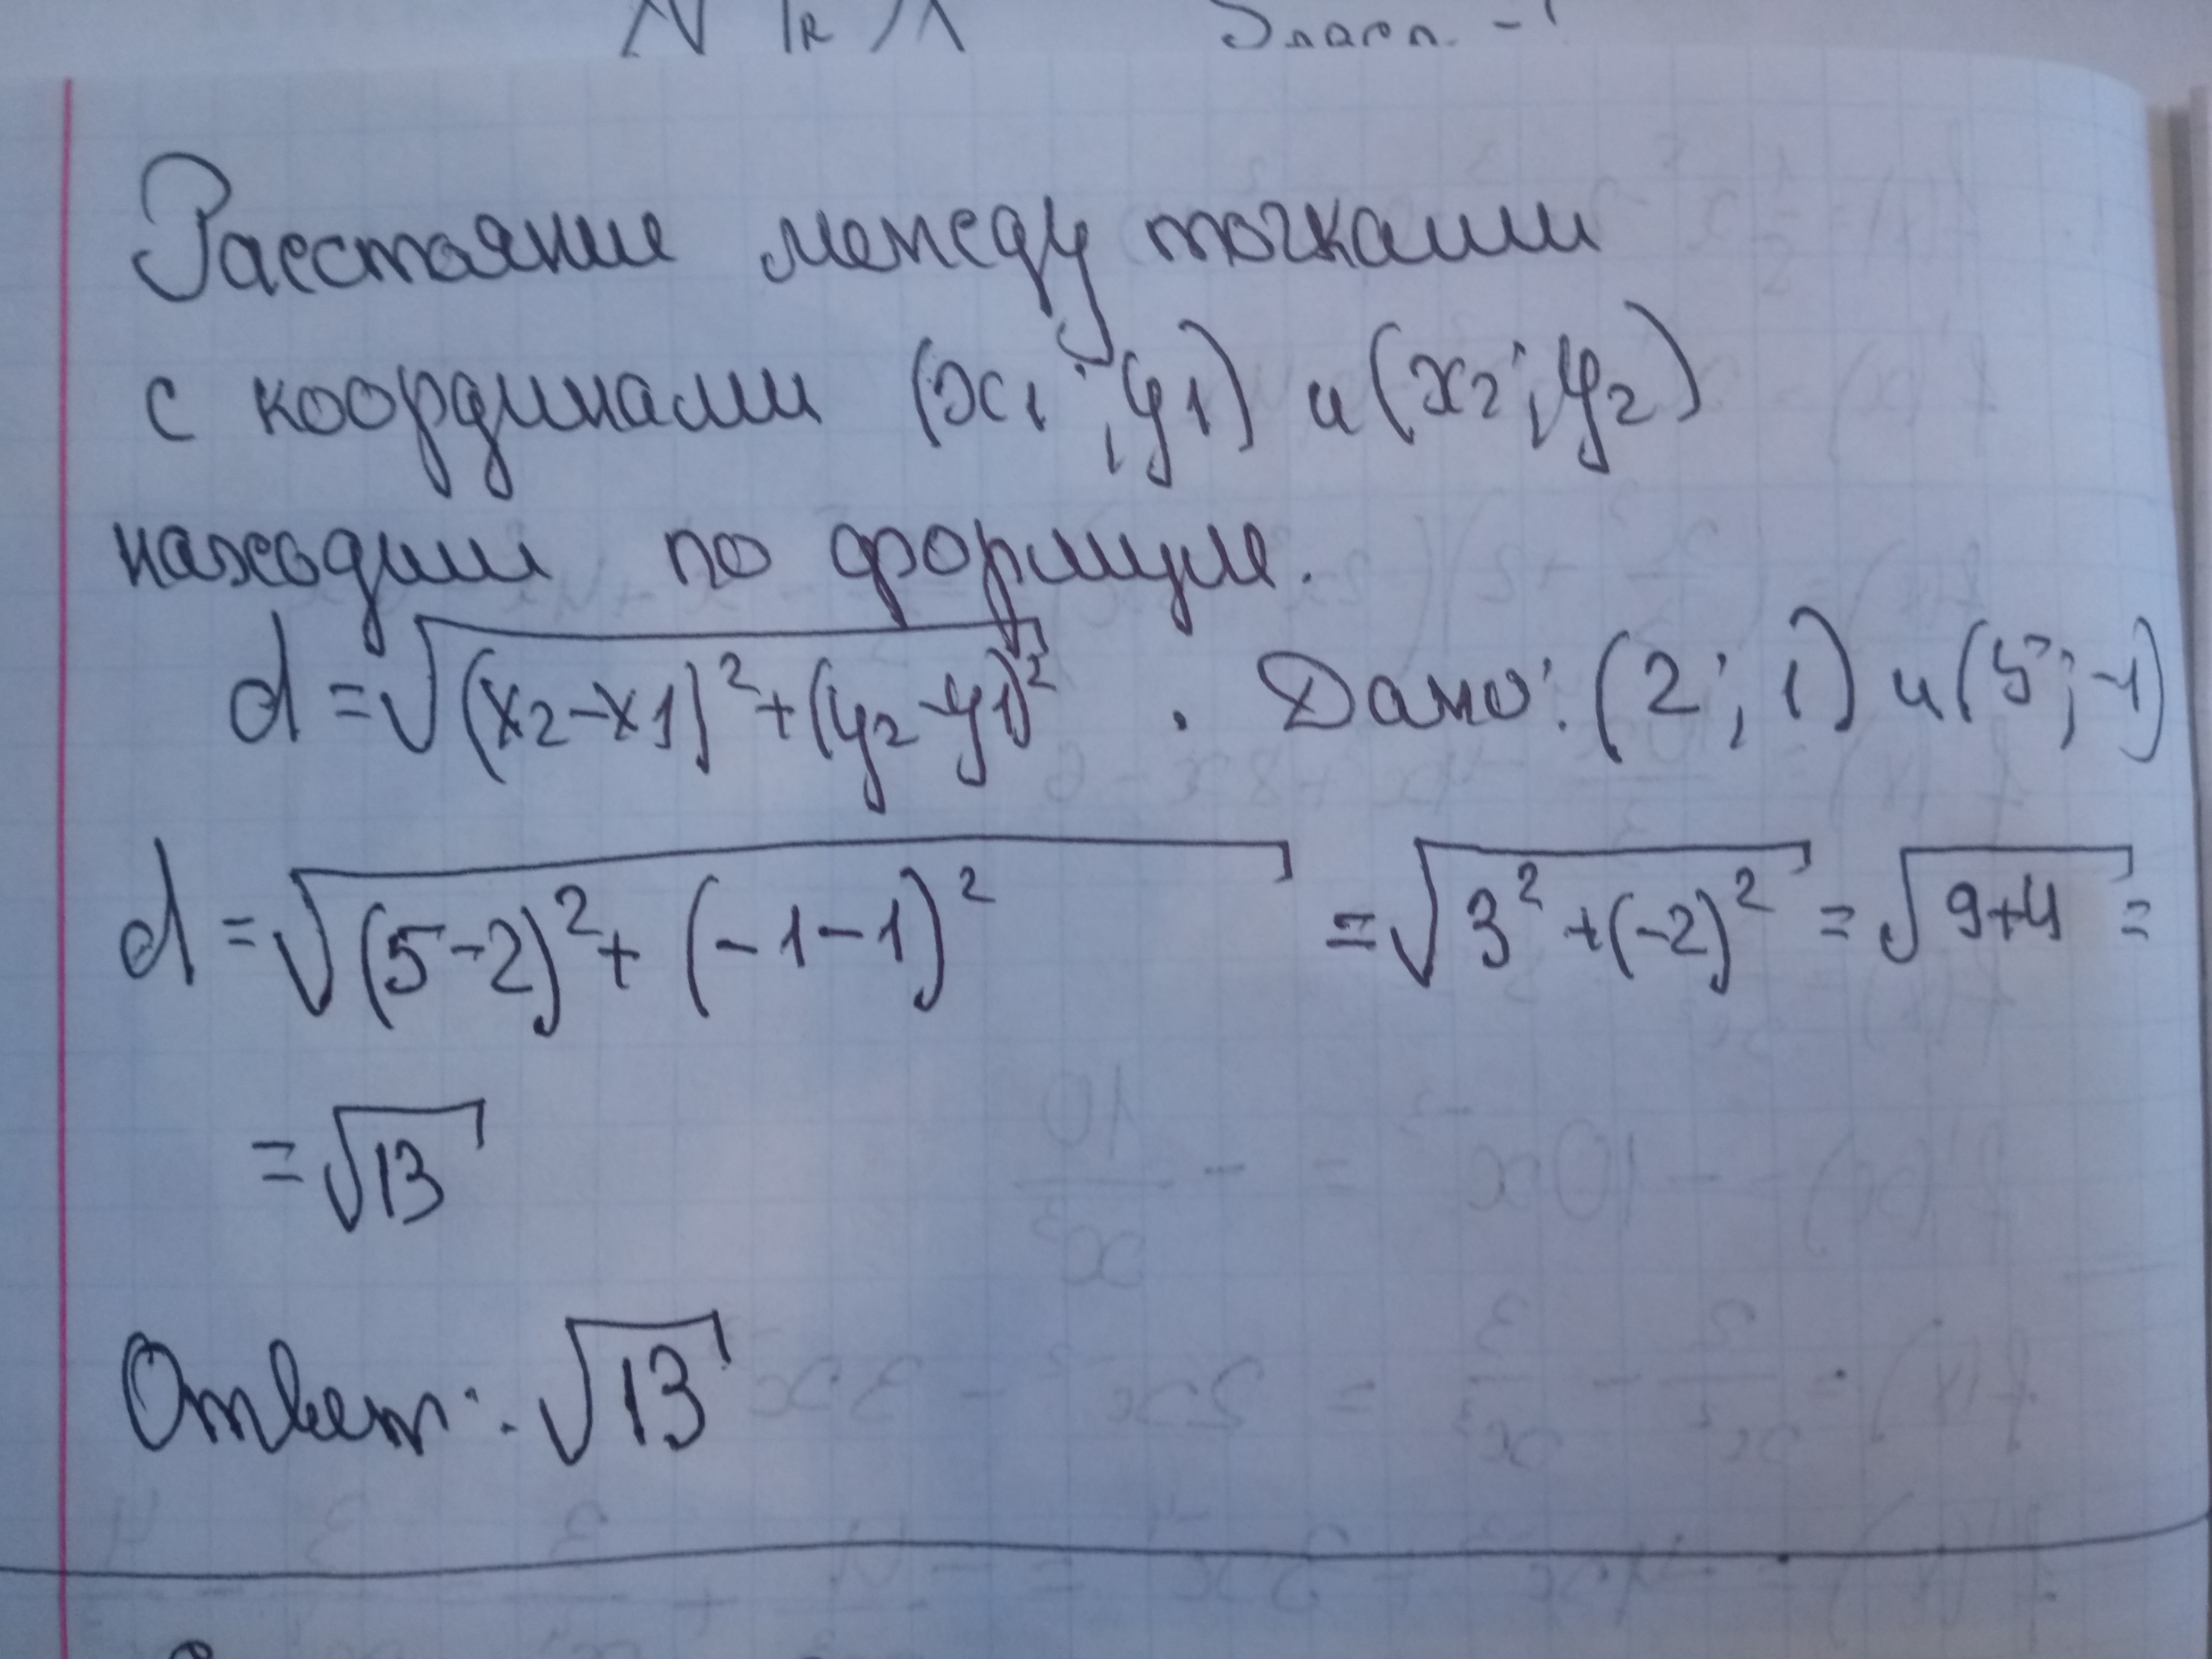 Расстояние между точками
с координами (x₁; y1) и (x₂; y₂)
находим по формуле.
d = √((x₂-x1)² + (y₂-y1)²) . Дано: (2; 1) и (5; -1)
d = √((5-2)² + (-1-1)²) = √(3² + (-2)²) = √(9+4) =
= √13
Ответ: √13